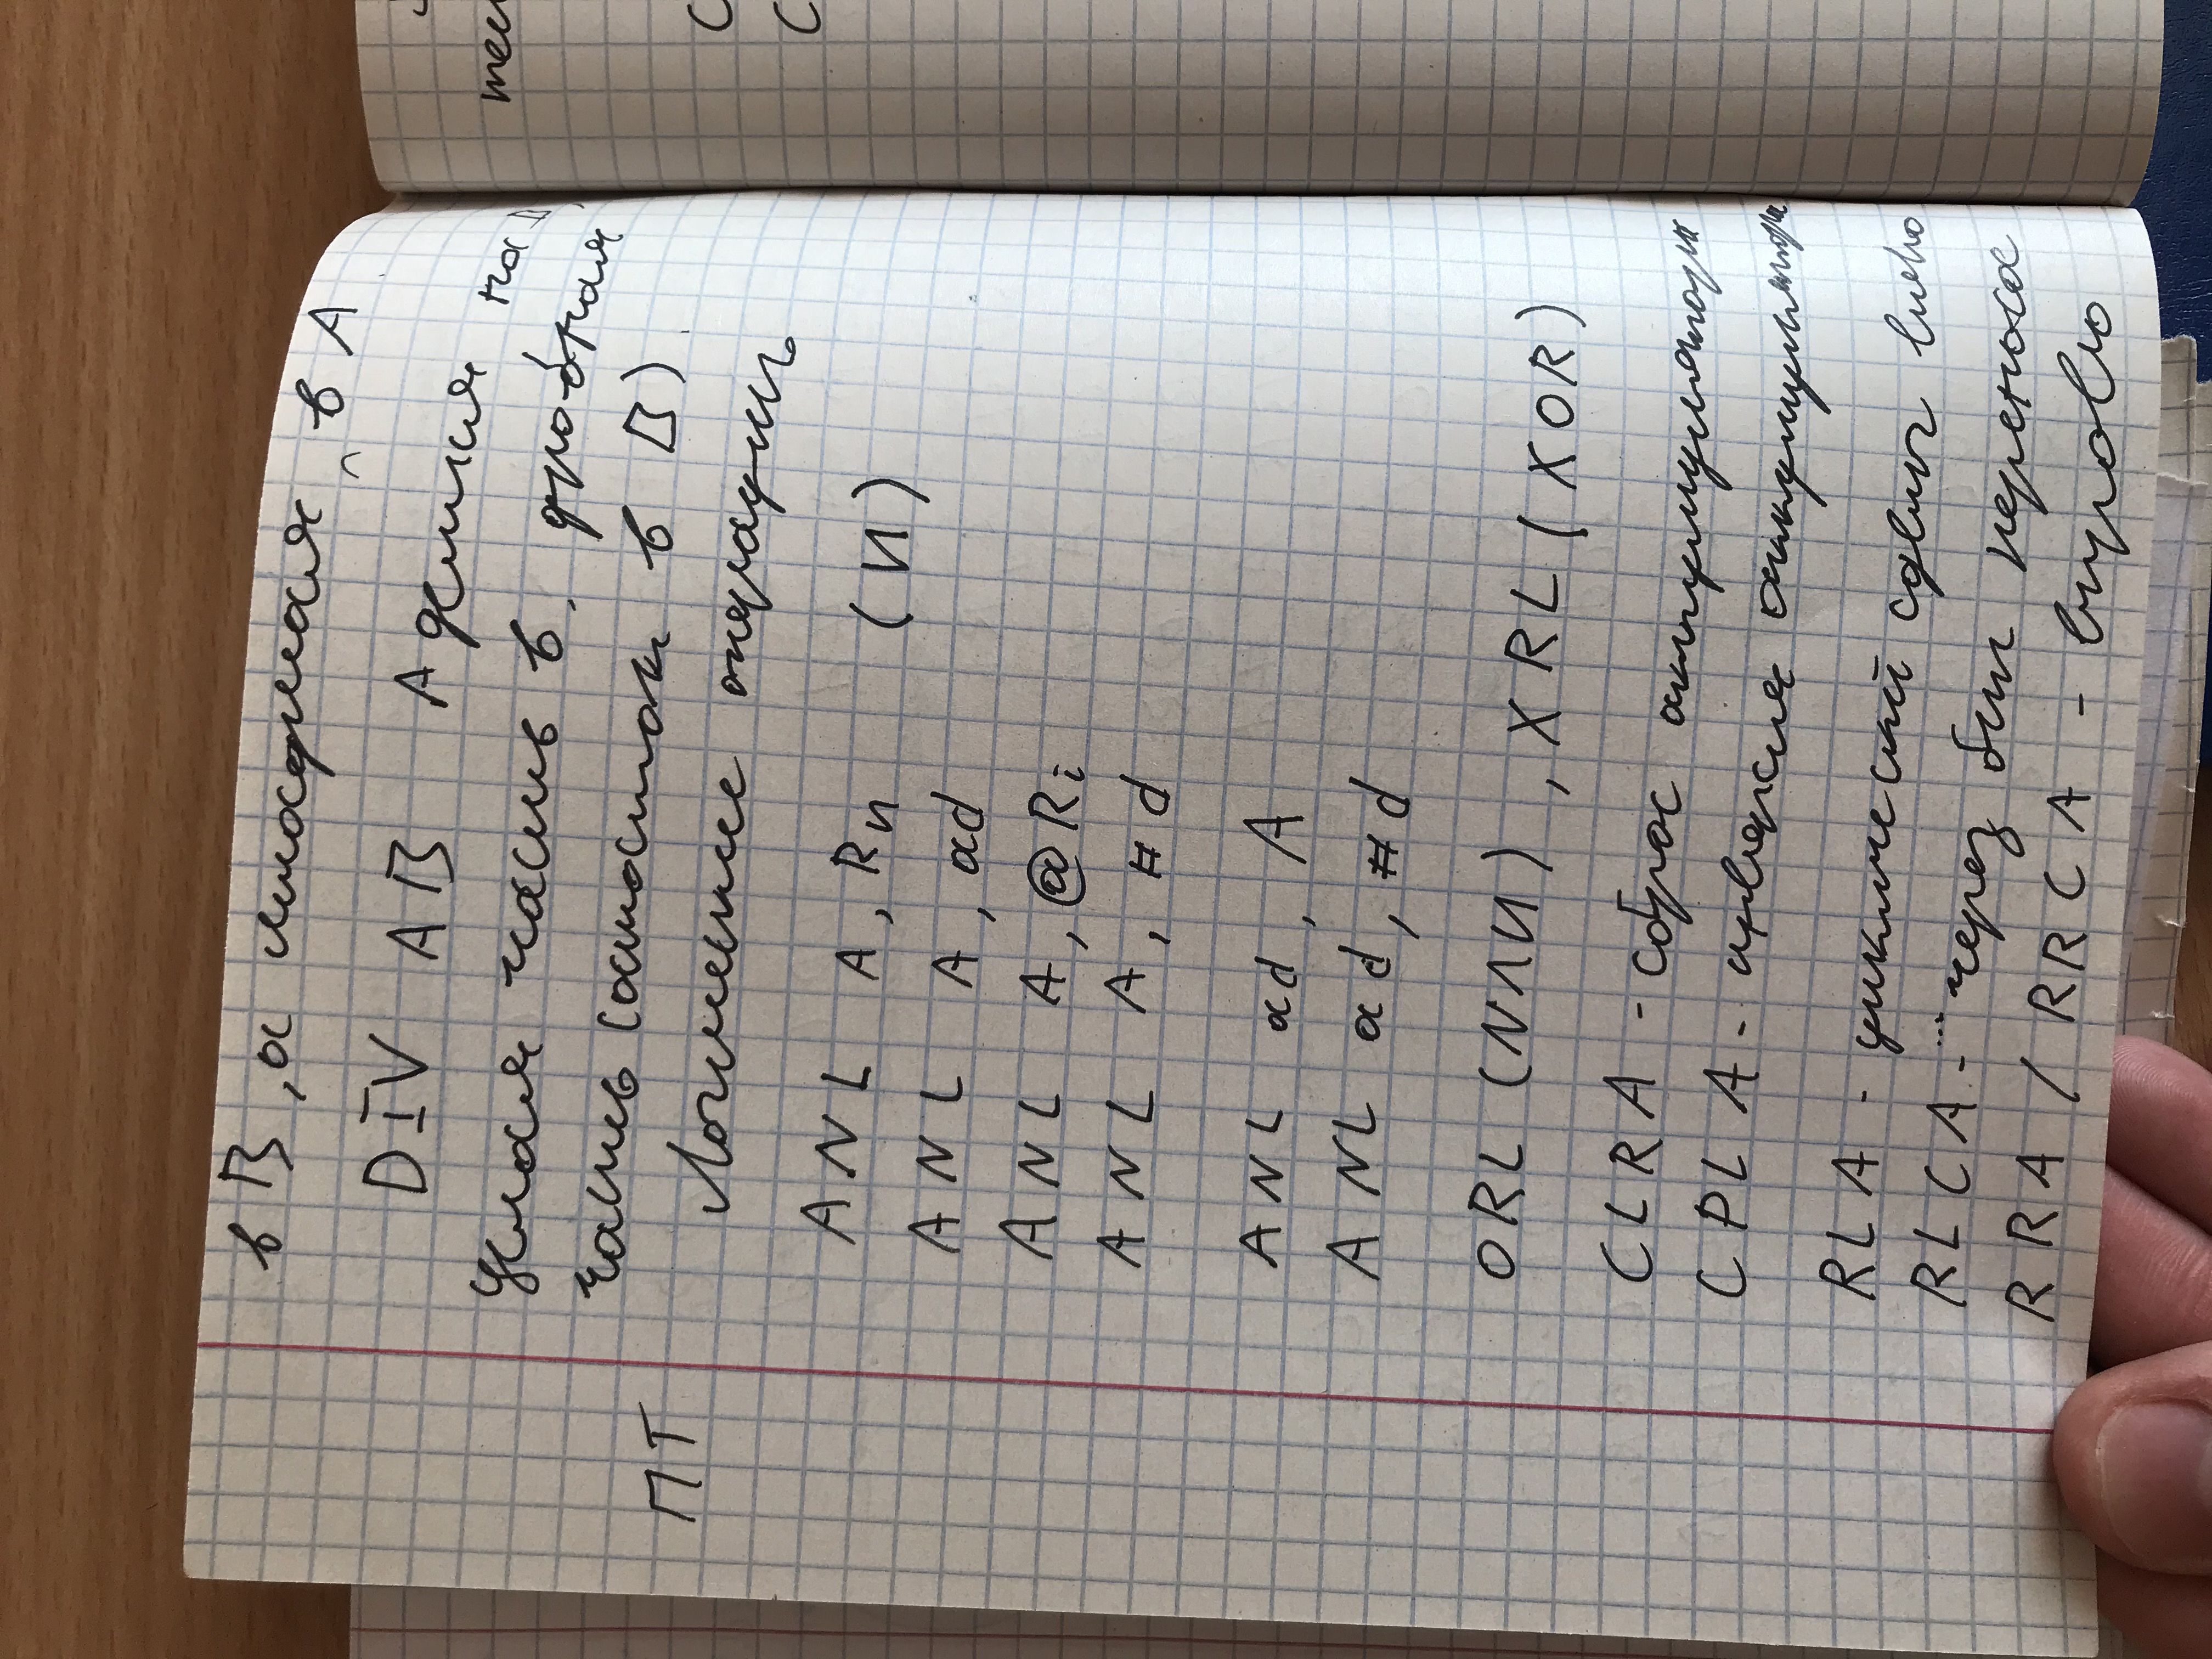 в B, а младшая в A
DIV AB A делится на B,
целая часть в, дробная
часть (остаток в B).
ПТ
Логические операции
ANL A, Rn (И)
ANL A, ad
ANL A, @Ri
ANL A, #d
ANL ad, A
ANL ad, #d
ORL (ИЛИ), XRL (XOR)
CLRA - сброс аккумулятора
CPLA - инверсия аккумулятора
RLA - циклический сдвиг влево
RLCA - ... через бит переноса
RRA / RRCA - вправо